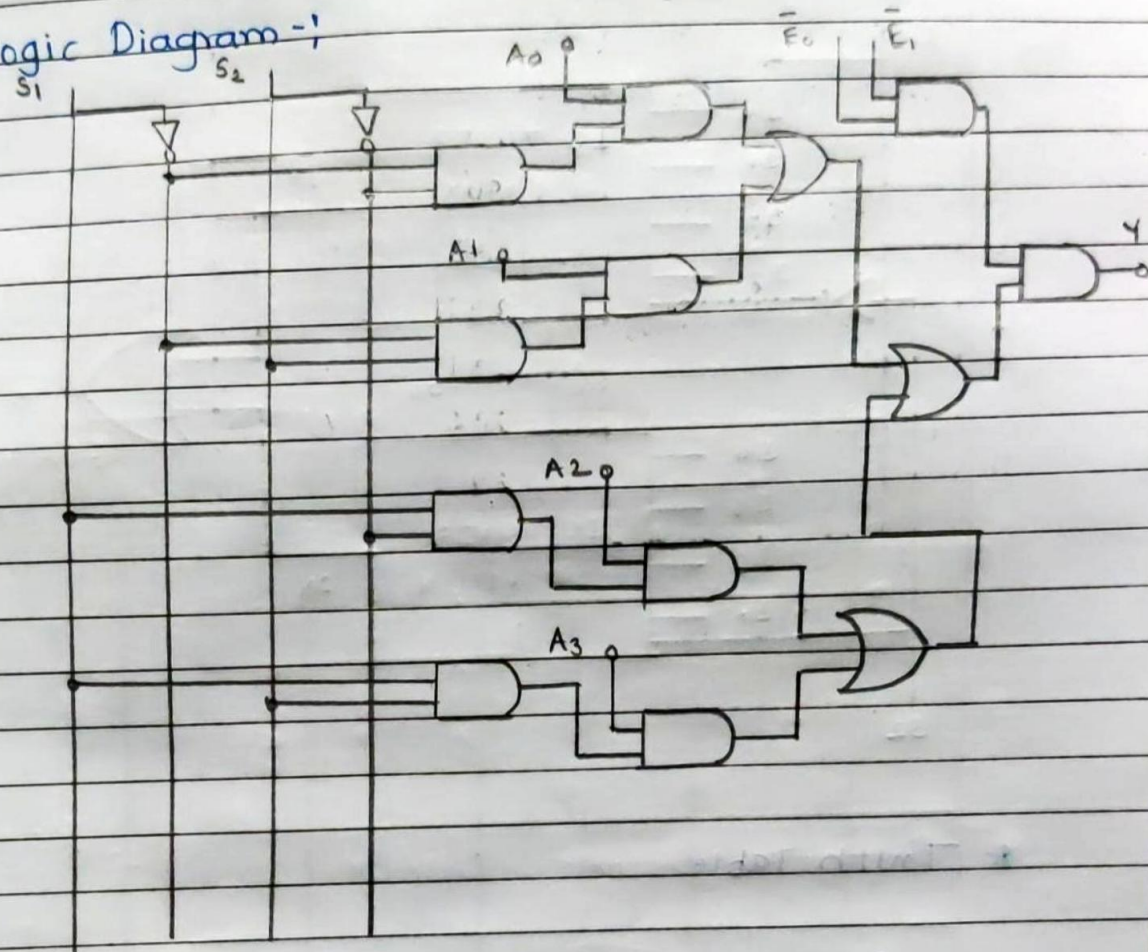 ogic Diagram -:
S1
S2
A0
E̅0
E̅1
A1
Y
A2
A3